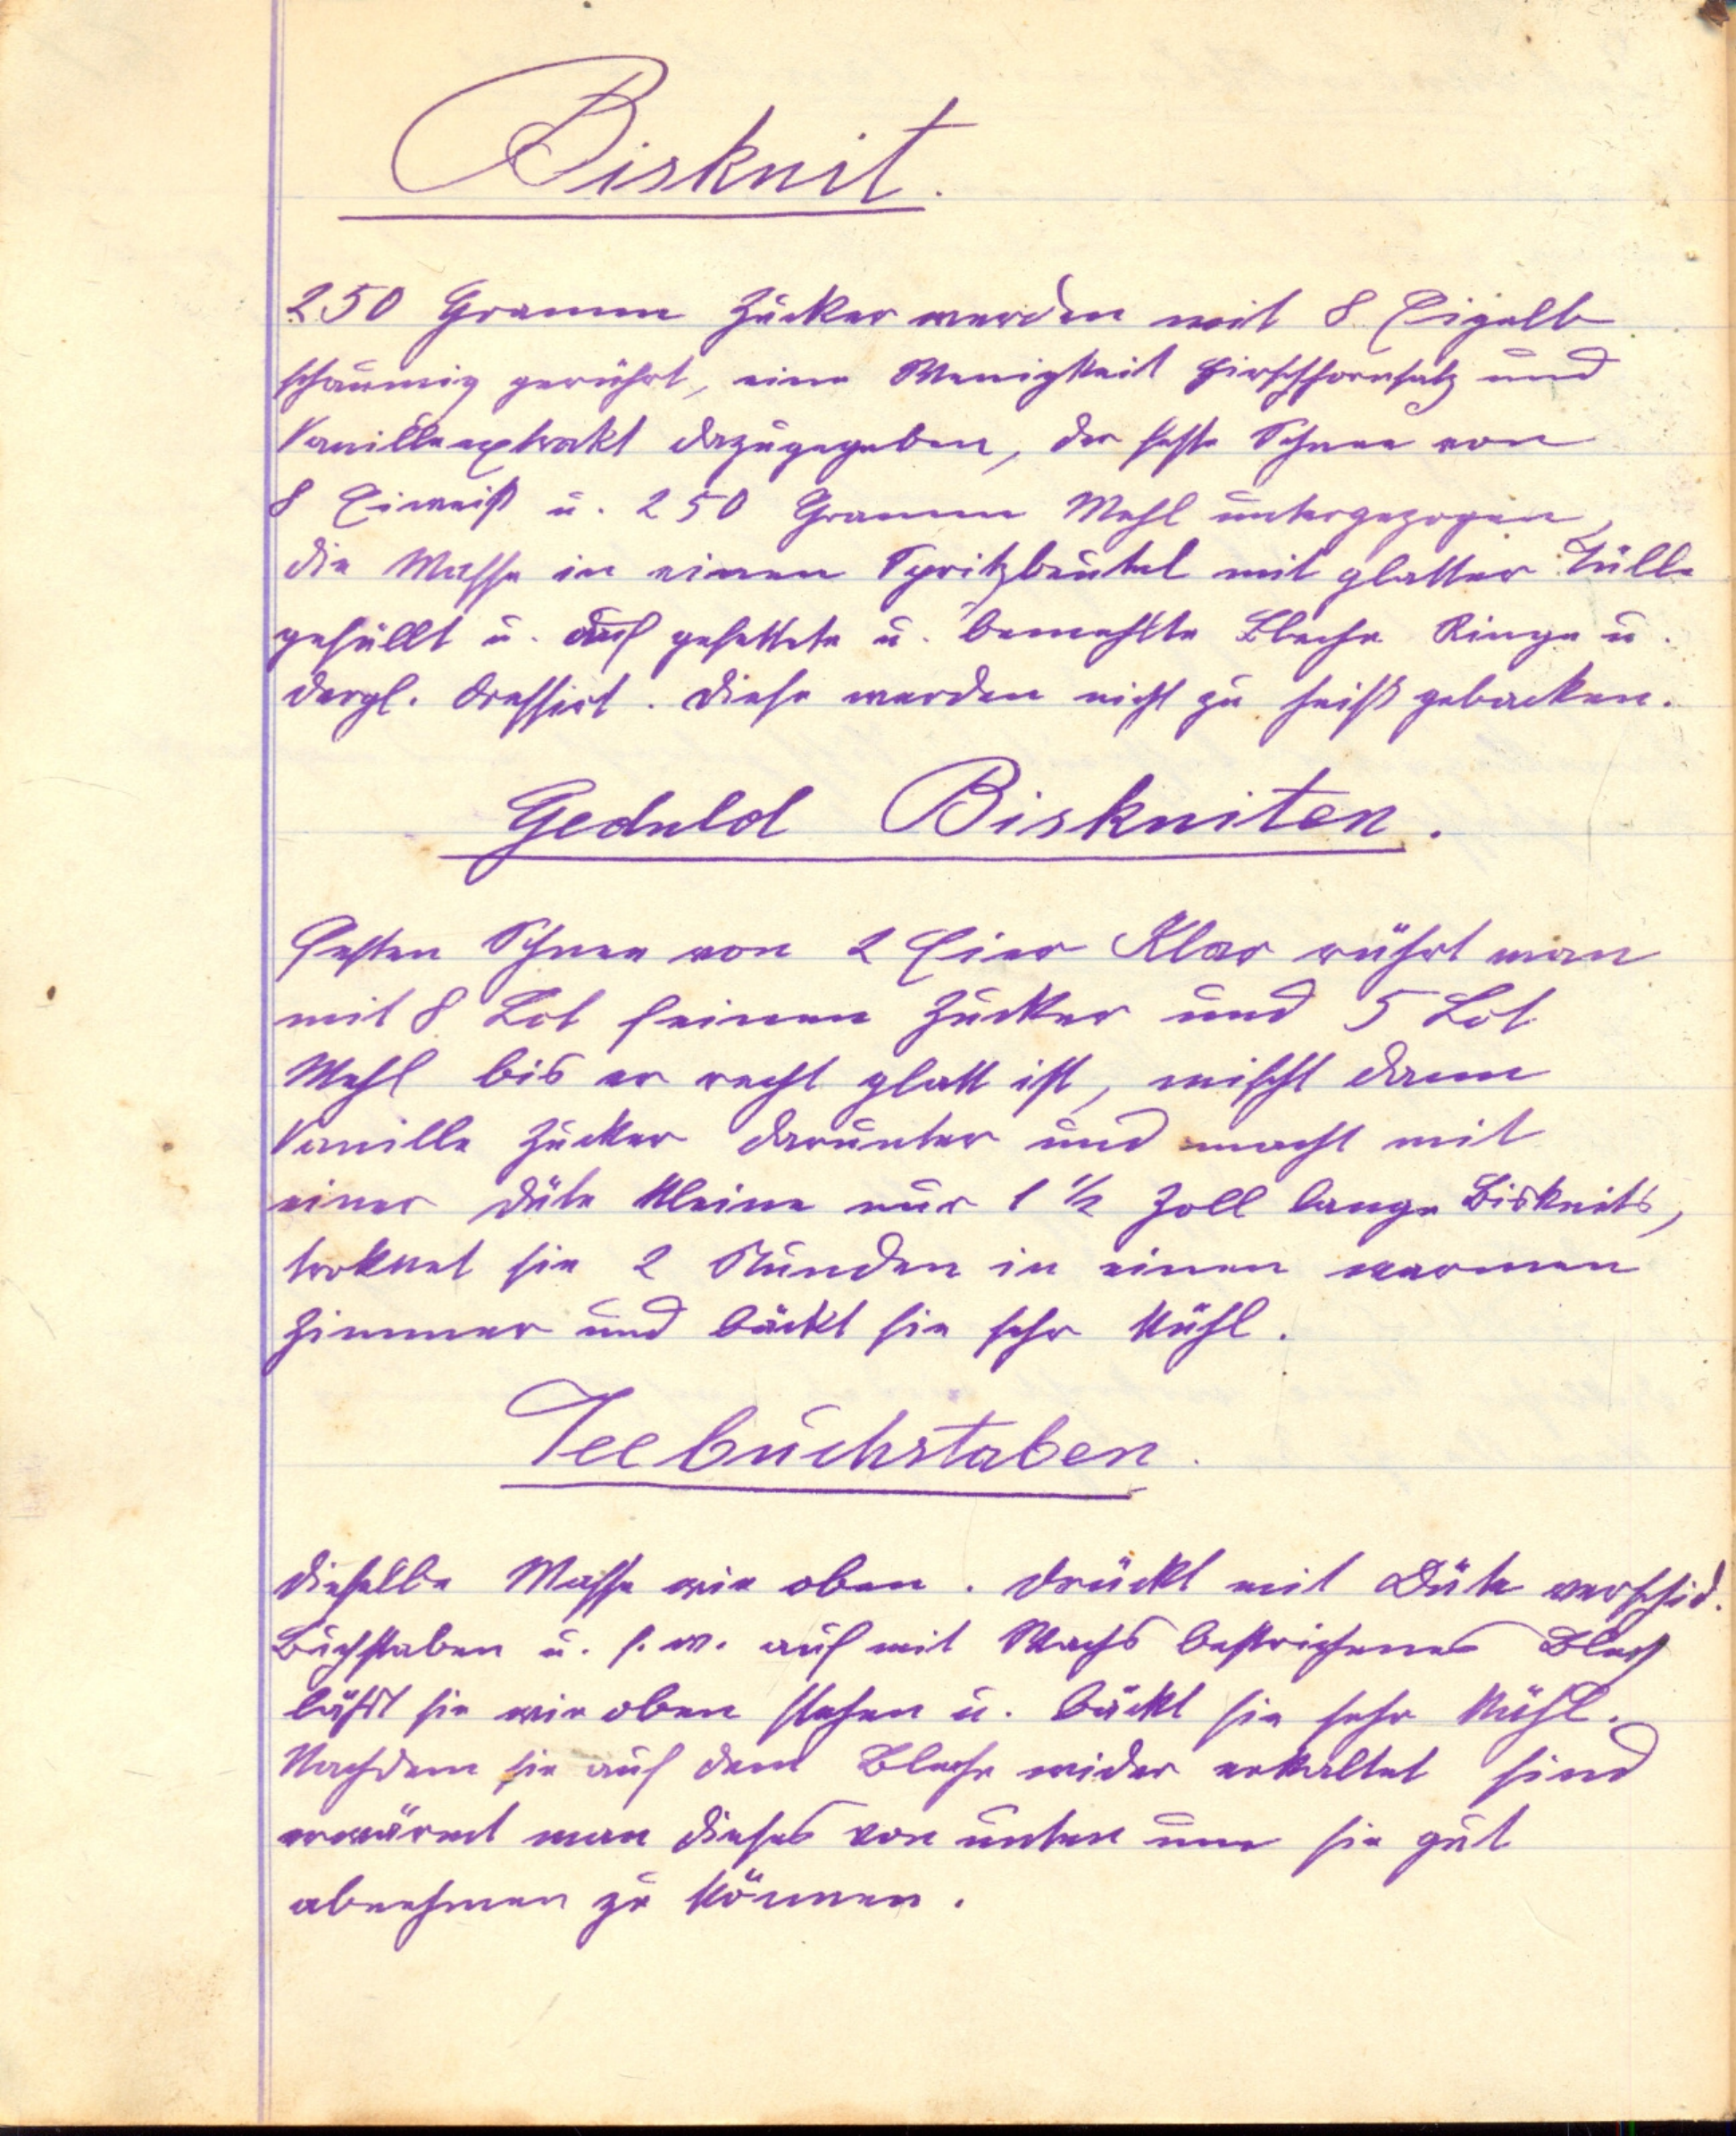 Biskuit.
250 Gramm Zucker werden mit 8 Eigelb
schaumig gerührt, eine Wenigkeit Hirschhornsalz und
Vanilleextrakt dazugegeben, der feste Schnee von
8 Eiweiß u. 250 Gramm Mehl untergezogen,
die Masse in einen Spritzbeutel mit glatter Tülle
gefüllt u. auf gefettete u. bemehlte Bleche Ringe u.
dergl. dressirt. Diese werden nicht zu heiß gebacken.
Geduld Biskuiten.
Festen Schnee von 2 Eier Klar rührt man
mit 8 Lot feinen Zucker und 5 Lot
Mehl bis er recht glatt ist, mischt dann
Vanille Zucker darunter und macht mit
einer Düte kleine nur 1 1/2 Zoll lange Biskuits,
troknet sie 2 Stunden in einen warmen
Zimmer und bäckt sie sehr kühl.
Teebuchstaben.
Dieselbe Masse wie oben. Drückt mit Düte verschid.
Buchstaben u. s. w. auf mit Wachs bestrichenes Blech
läßt sie wie oben stehen u. bäckt sie sehr kühl.
Nachdem sie auf dem Bleche wider erkaltet sind
erwärmt man dieses von unten um sie gut
abnehmen zu können.